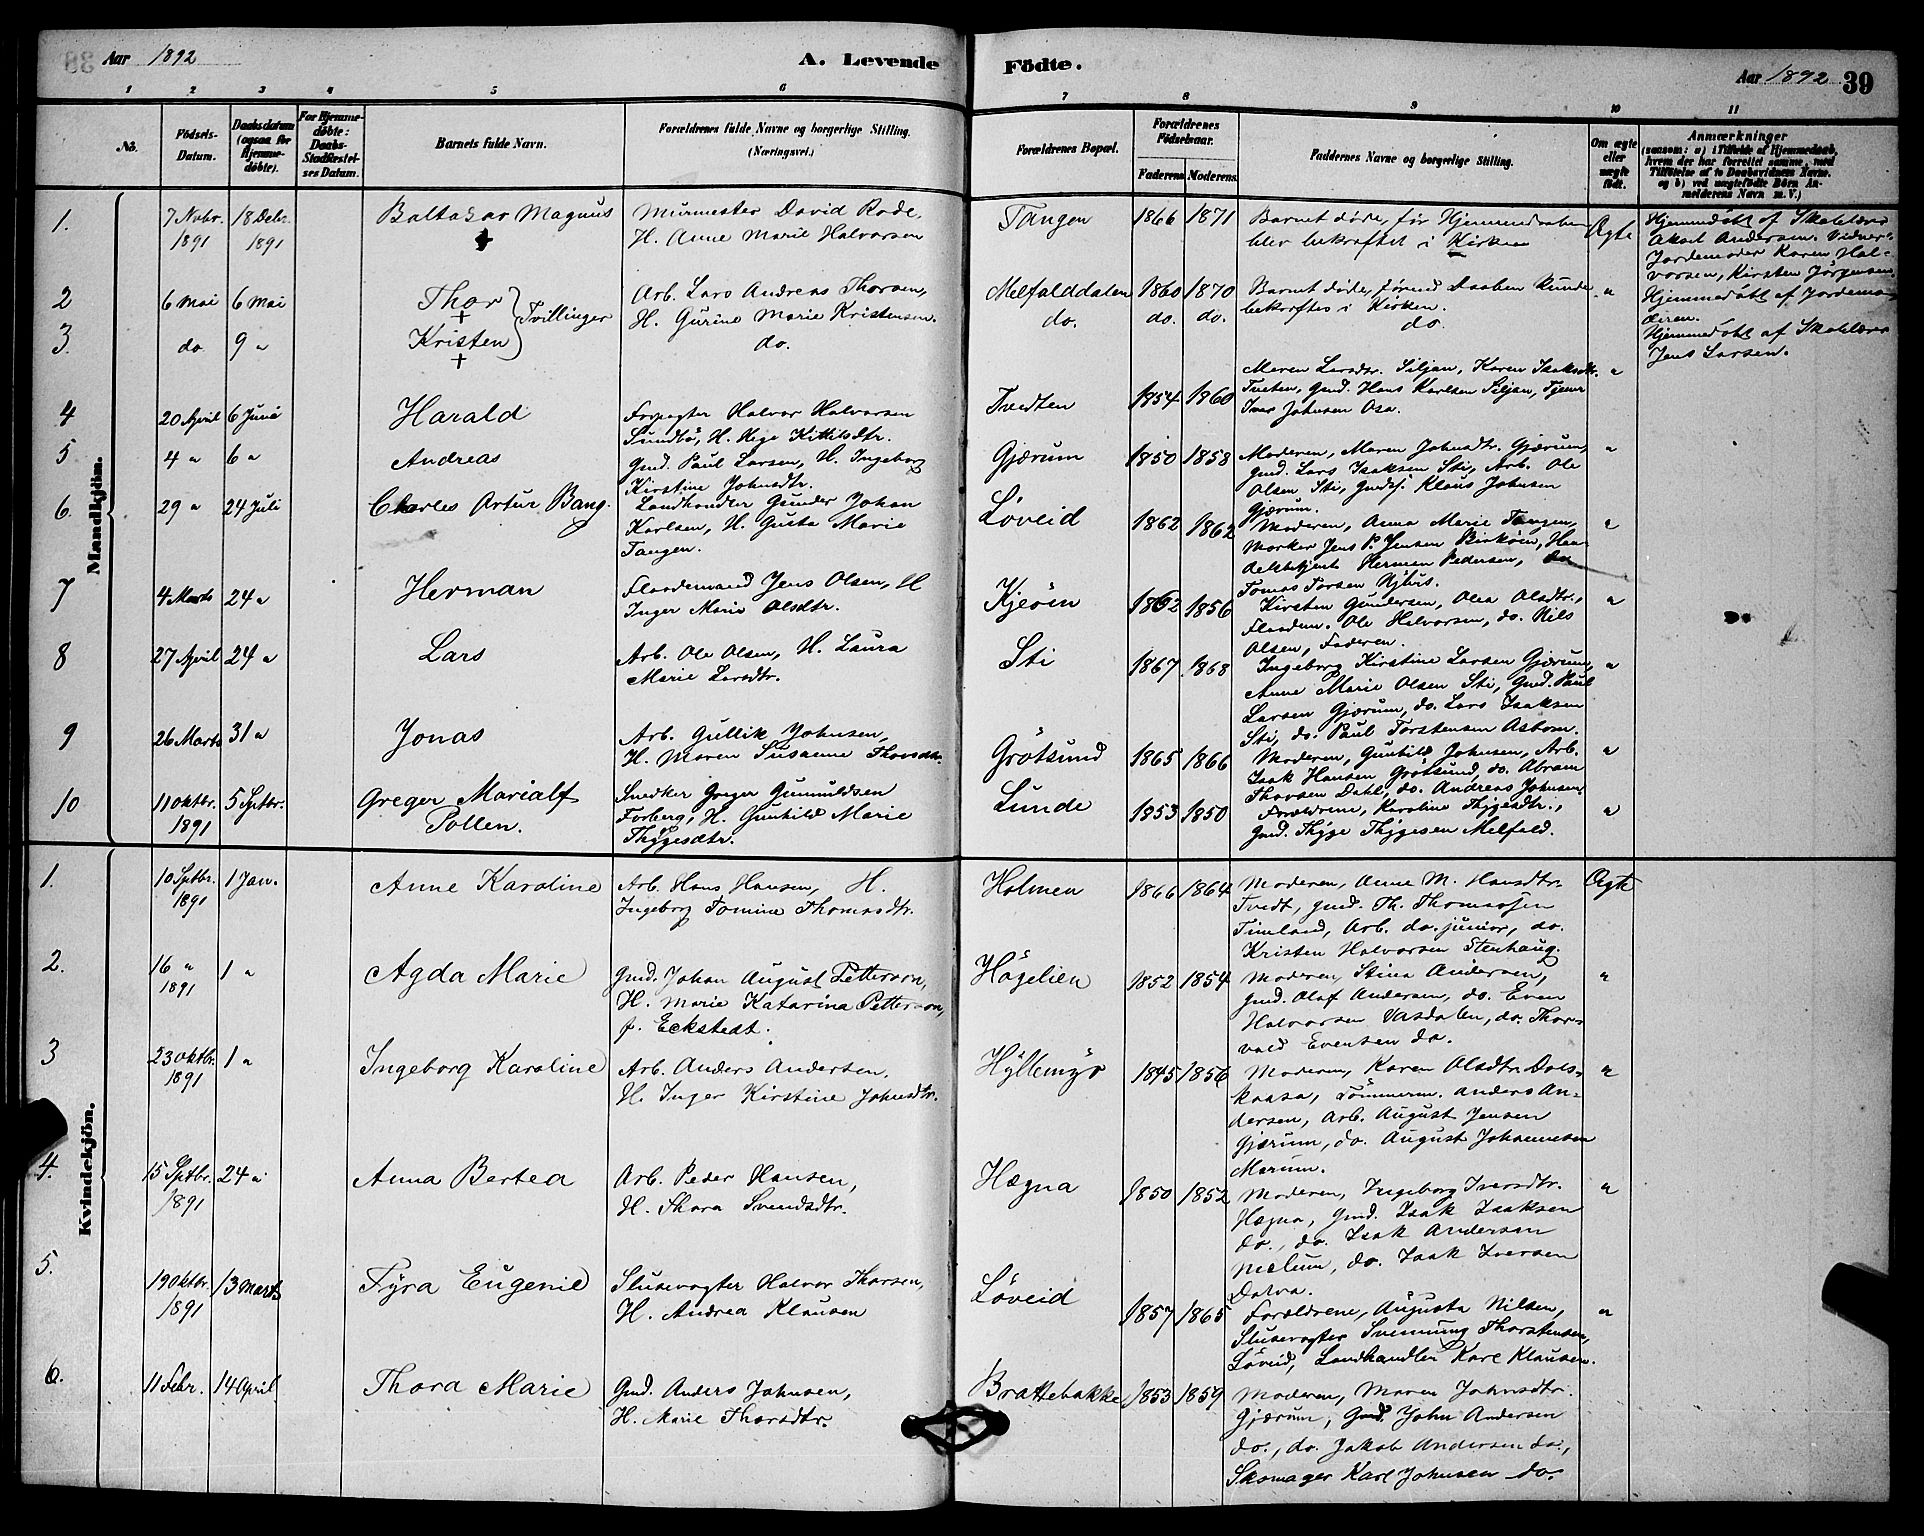 Aar 1892
A. Levende Födte.
Aar 1892 39
1 2 3 4 5 6 7 8 9 10 11
No.
Födsels-Datum.
Daabsdatum (ogsaa for Hjemmedöbte).
For Hjemmedöbte: Daabs-Stadfæstelses Datum.
Barnets fulde Navn.
Forældrenes fulde Navne og borgerlige Stilling. (Næringsvei.)
Forældrenes Bopæl.
Forældrenes Födselsaar.
Faderens Moderens
Faddernes Navne og borgerlige Stilling.
Om ægte eller uægte födt.
Anmærkninger
(saasom: a) i Tilfælde af Hjemmedaab, hvem der har forrettet samme, med Tilföielse af to Daabsvidners Navne, og b) ved uægtefödte Börn Anmelderens Navn m. V.)
Mandkjön.
1. 7 Novbr. 1891 18 Debr. 1891 Baltasar Magnus
Murmester David Rode,
H. Anne Marie Halvorsen
Tangen 1866 1871
Barnet døde, før Hjemmedaaben
blev bekræftet i Kirken
Ægte
Hjemmedöbt af Skolelærer
Aksel Andersen. Vidner:
Jordemoder Karen Hal-
vorsen, Kirsten Jörgensen.
2 6 Mai 6 Mai Thor + Tvillinger
Arb. Lars Andreas Thorsen,
H. Gurine Marie Kristensen.
Melfalddalen 1860 1870
Barnet døde, førend Daaben kunde
bekræftes i Kirken.
"
Hjemmedöbt af Jordemo-
deren.
3. do 9 " Kristen +
do.
do. do. do. do
Hjemmedöbt af Skolelærer
Jens Larsen.
4 20 April 6 Juni Harald
Forpagter Halvor Halvorsen
Sundbö, H. Hege Kittilsdtr.
Tvedten 1854 1860
Maren Larsdtr. Siljan, Karen Isaksdtr.
Tveten, Gmd. Hans Karlsen Siljan, Tjener
Iver Johnsen Osa.
"
5 4 " 6 " Andreas
Gmd. Paul Larsen, H. Ingeborg
Kirstine Johnsdtr.
Gjærum 1850 1858
Moderen, Maren Johnsdtr. Gjærum,
Gmd. Lars Isaksen Sti, Arb. Ole
Olsen Sti, Gmds. Klaus Johnsen
Gjærum.
"
6. 29 " 24 Juli Charles Artur Bang.
Landhandler Gunder Johan
Karlsen, H. Gusta Marie
Tangen.
Löveid 1862 1862
Moderen, Anna Marie Tangen,
Marker Jens P. Jensen Birköen, Han-
delsbetjent Herman Pedersen, do
Tomas Torsen Nyhus.
"
7 4 Marts 24 " Herman
Flaademand Jens Olsen, H
Inger Marie Olsdtr.
Kjeöen 1862 1856
Kirsten Gundersen, Olea Olsdtr.,
Flaadem. Ole Halvorsen, do. Nils
Olsen, Faderen.
"
8 27 April 24 " Lars
Arb. Ole Olsen, H. Laura
Marie Larsdtr.
Sti 1867 1868
Ingeborg Kirstine Larsen Gjærum,
Anne Marie Olsen Sti, Gmd. Paul
Larsen Gjærum, do. Lars Isaksen
Sti, do. Paul Torstensen Aasborn.
"
9 26 Marts 31 " Jonas
Arb. Gullik Johnsen,
H. Maren Susanne Thorsdtr.
Grötsund 1865 1866
Moderen, Gunhild Johnsen, Arb.
Isak Hansen Grötsund, do. Abram
Thorsen Dahl, do. Andreas Johnsen.
"
10 11 Oktbr. 1891 5 Sptbr. Greger Marialf
Pollen.
Snedker Greger Gunnuldsen
Forberg, H. Gunhild Marie
Thygesdtr.
Lunde 1853 1850
Forældrene, Karoline Thygesdtr.,
Gmd. Thyge Thygesen Melfald.
"
Kvindekjön.
1. 10 Sptbr. 1891 1 Jan. Anne Karoline
Arb. Hans Hansen, H.
Ingeborg Tomine Thomasdtr.
Holmen 1866 1864
Moderen, Anne M. Hansdtr.
Tvedt, Gmd. Th. Thomassen
Timland, Arb. do. junior, do.
Kristen Halvorsen Stenhaug.
Ægte
2. 16 " 1891 1 " Agda Marie
Gmd. Johan August Petterson,
H. Marie Katarina Petterson,
f. Eckstedt.
Högelien 1852 1854
Moderen, Stina Andersen,
Gmd. Olaf Andersen, do. Even
Halvorsen Vasdalen, do. Thor-
vald Evensen do.
"
3 23 Oktbr. 1891 1 " Ingeborg Karoline
Arb. Anders Andersen,
H. Inger Kirstine Johnsdtr.
Hyllemyr 1845 1856
Moderen, Karen Olsdtr. Dols-
kaasa, Tömmerm. Anders An-
dersen, Arb. August Jensen
Gjærum, do. August Johannesen
Mærum.
"
4. 15 Sptbr. 1891 24 " Anna Bertea
Arb. Peder Hansen,
H. Thora Svendsdtr.
Hægna 1850 1852
Moderen, Ingeborg Iversdtr.
Hægna, Gmd. Isak Isaksen
do., do. Isak Andersen
Melum, do. Isak Iversen
Dalva.
"
5. 19 Oktbr. 1891 13 Marts Fyra Eugenie
Slusevogter Halvor Thorsen,
H. Andrea Klausen
Löveid 1857 1865
Forældrene, Augusta Nilsen,
Slusevogter Svennung Thorstensen,
Löveid, Landhandler Karl Klausen.
"
6. 11 Febr. 14 April Thora Marie
Gmd. Anders Johnsen,
H. Marie Thorsdtr.
Brattebakke 1853 1859
Moderen, Maren Johnsdtr.
Gjærum, Gmd. John Andersen
do., do. Jakob Andersen do.,
Skomager Karl Johnsen do.